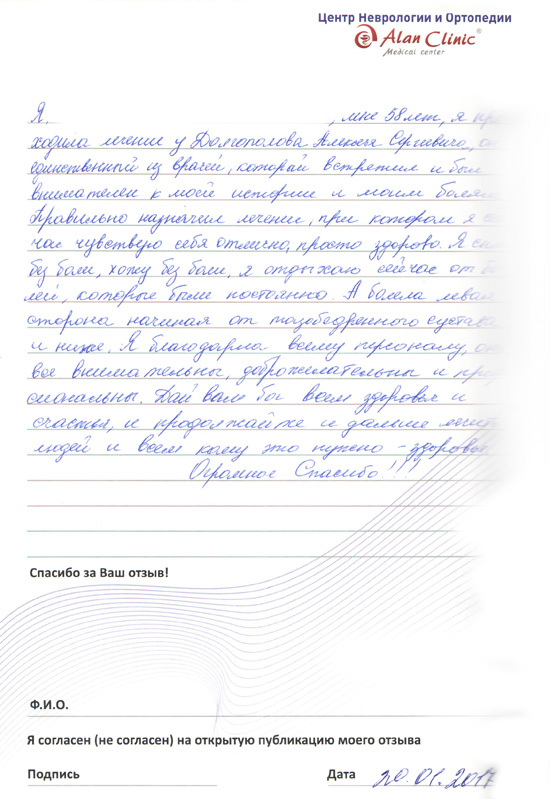 Центр Неврологии и Ортопедии
Alan Clinic®
Medical center
Я, , мне 58 лет, я про
ходила лечение у Долгополова Алексея Сергеевича, он
единственный из врачей, который встретил и был
внимателен к моей истории и моим болям
Правильно назначил лечение, при котором я сей
час чувствую себя отлично, просто здорово. Я сплю
без боли, хожу без боли, я отдыхаю сейчас от бо
лей, которые были постоянно. А болела левая
сторона начиная от тазобедренного сустава
и ниже. Я благодарна всему персоналу, они
все внимательны, доброжелательны и проф
сиональны. Дай вам бог всем здоровья и
счастья, и продолжайте и дальше лечить
людей и всем кому это нужно - здоровья
Огромное Спасибо!!!
Спасибо за Ваш отзыв!
Ф.И.О.
Я согласен (не согласен) на открытую публикацию моего отзыва
Подпись Дата 20.01.2017